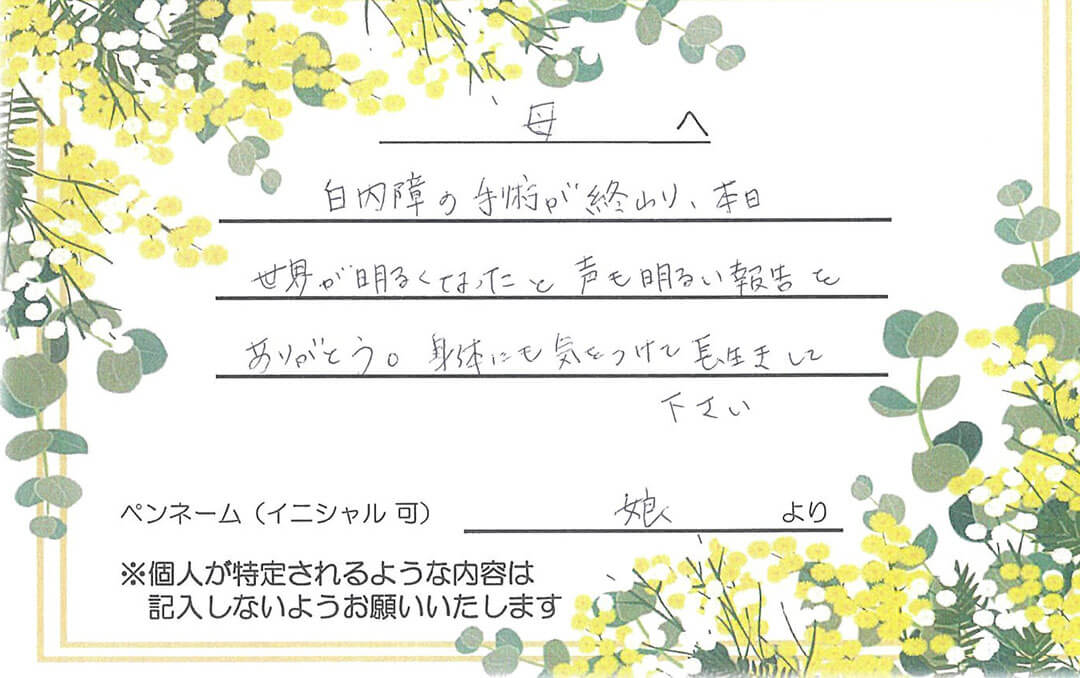 母 へ
白内障の手術が終わり、本日
世界が明るくなったと声も明るい報告を
ありがとう。身体にも気をつけて長生きして
下さい
ペンネーム（イニシャル 可） 娘 より
※個人が特定されるような内容は
記入しないようお願いいたします